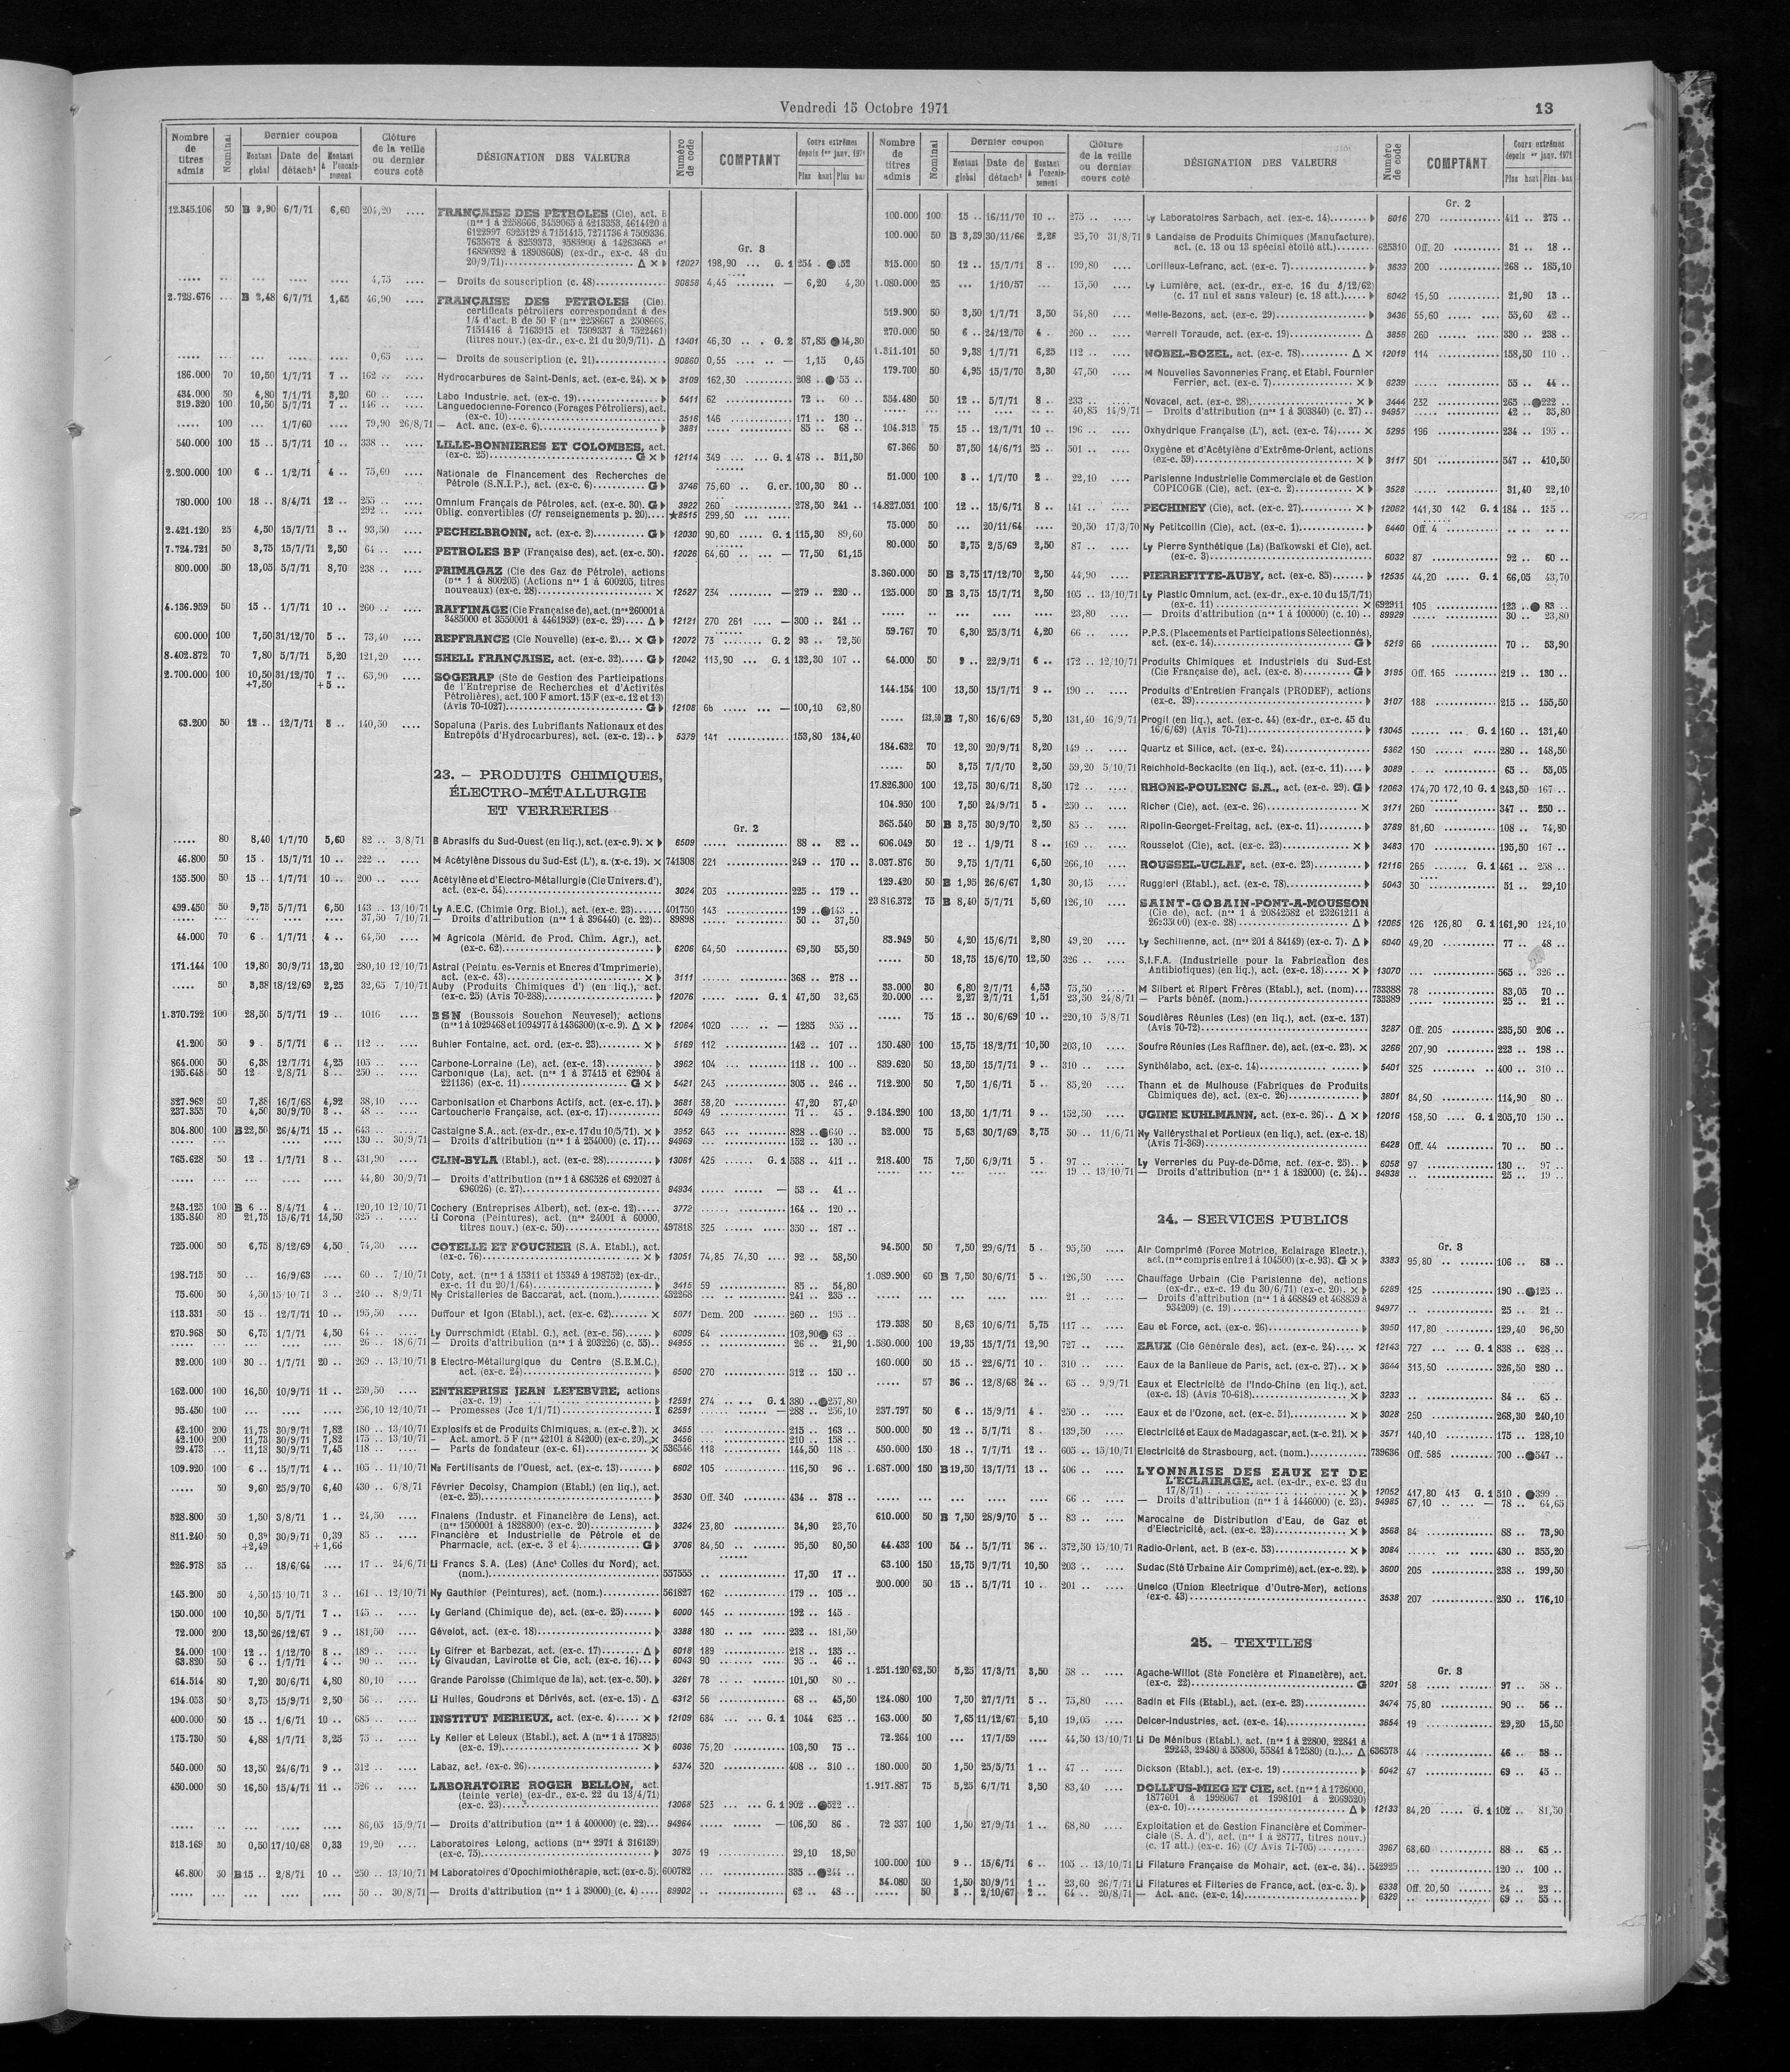 Vendredi 15 Octobre 1971
13
Nombre de titres admis
Nominal
Dernier coupon
Montant global
Date de détach^t
Montant à l'encaissement
Clôture de la veille ou dernier cours coté
DÉSIGNATION DES VALEURS
Numéro de code
COMPTANT
Cours extrêmes depuis 1er janv. 1971
Plus haut Plus bas
12.345.106 50 B 9,90 6/7/71 6,60 204,20 .... FRANÇAISE DES PÉTROLES (Cie), act. B
(nos 1 à 2258666, 3459065 à 4213353, 4614420 à
6122997 6925129 à 7151415, 7271736 à 7509336
7635672 à 8259373, 9585900 à 14263665 et
16850392 à 18908608) (ex-dr., ex-c. 48 du
Gr. 3
20/9/71) Δ × 12027 198,90 ... G. 1 254
..... ... ... .... .... 4,75 .... — Droits de souscription (c. 48) 90858 4,45 — 6,20 4,30
2.728.676 ... B 2,48 6/7/71 1,65 46,90 .... FRANÇAISE DES PETROLES (Cie).
certificats pétroliers correspondant à des
1/4 d'act. B de 50 F (nos 2258667 à 2508666,
7151416 à 7163915 et 7509337 à 7522461)
(titres nouv.) (ex-dr., ex-c. 21 du 20/9/71). Δ 13401 46,30 G. 2 57,85 44,30
0,65 .... — Droits de souscription (c. 21) 90860 0,55 — 1,15 0,45
186.000 70 10,50 1/7/71 7 .. 162 .. Hydrocarbures de Saint-Denis, act. (ex-c. 24). × 3109 162,30 208 .. 55 ..
434.000 50 4,80 7/1/71 3,20 60 .. Labo Industrie, act. (ex-c. 19) 5411 62 72 .. 60 ..
319.320 100 10,50 5/7/71 7 .. 146 .. Languedocienne-Forenco (Forages Pétroliers), act.
(ex-c. 10) 3516 146 171 .. 130 ..
..... 100 ... 1/7/60 .... 79,90 26/8/71 — Act. anc. (ex-c. 6) 3881 85 .. 68 ..
540.000 100 15 .. 5/7/71 10 .. 338 .. LILLE-BONNIERES ET COLOMBES, act.
(ex-c. 25) G × 12114 349 G. 1 478 .. 311,50
2.200.000 100 6 .. 1/2/71 4 .. 75,60 .... Nationale de Financement des Recherches de
Pétrole (S.N.I.P.), act. (ex-c. 6) G 3746 75,60 .. G. cr. 100,30 80 ..
780.000 100 18 .. 8/4/71 12 .. 255 .. Omnium Français de Pétroles, act. (ex-c. 30). G 3922 260 278,50 241 ..
292 .. Oblig. convertibles (Cf renseignements p. 20) ★8515 299,50
2.421.120 25 4,50 15/7/71 3 .. 93,50 .... PECHELBRONN, act. (ex-c. 2) G 12030 90,60 G. 1 115,30 89,60
7.724.721 50 3,75 15/7/71 2,50 64 .. PETROLES BP (Française des), act. (ex-c. 50). 12026 64,60 — 77,50 61,15
800.000 50 13,05 5/7/71 8,70 238 .. PRIMAGAZ (Cie des Gaz de Pétrole), actions
(nos 1 à 800205) (Actions nos 1 à 600205, titres
nouveaux) (ex-c. 28) × 12527 234 — 279 .. 220 ..
4.136.959 50 15 .. 1/7/71 10 .. 260 .. RAFFINAGE (Cie Française de), act. (nos 260001 à
3485000 et 3550001 à 4461959) (ex-c. 29) Δ 12121 270 261 — 300 .. 241 ..
600.000 100 7,50 31/12/70 5 .. 73,40 .... REPFRANCE (Cie Nouvelle) (ex-c. 2) × G 12072 73 G. 2 93 .. 72,50
8.402.872 70 7,80 5/7/71 5,20 121,20 .... SHELL FRANÇAISE, act. (ex-c. 32) G 12042 113,90 ... G. 1 132,30 107 ..
2.700.000 100 10,50 31/12/70 7 .. 65,90 .... SOGERAP (Sté de Gestion des Participations
+7,50 +5 .. de l'Entreprise de Recherches et d'Activités
Pétrolières), act. 100 F amort. 15 F (ex-c. 12 et 13)
(Avis 70-1027) G 12108 — 100,10 62,80
63.200 50 12 .. 12/7/71 8 .. 140,50 .... Sopaluna (Paris. des Lubrifiants Nationaux et des
Entrepôts d'Hydrocarbures), act. (ex-c. 12) 5379 141 153,80 134,40
23. — PRODUITS CHIMIQUES,
ÉLECTRO-MÉTALLURGIE
ET VERRERIES
Gr. 2
..... 80 8,40 1/7/70 5,60 82 .. 3/8/71 B Abrasifs du Sud-Ouest (en liq.), act. (ex-c. 9). × 6509 88 .. 82 ..
46.800 50 15 . 15/7/71 10 .. 222 .. M Acétylène Dissous du Sud-Est (L'), a. (x-c. 19). × 741308 221 249 .. 170 ..
155.500 50 15 .. 1/7/71 10 .. 200 .. Acétylène et d'Electro-Métallurgie (Cie Univers. d'),
act. (ex-c. 54) 3024 203 225 .. 179 ..
499.450 50 9,75 5/7/71 6,50 143 .. 13/10/71 Ly A.E.C. (Chimie Org. Biol.), act. (ex-c. 23) 401750 143 199 .. 143 ..
37,50 7/10/71 — Droits d'attribution (nos 1 à 396440) (c. 22) 89898 50 .. 37,50
44.000 70 6 . 1/7/71 4 .. 64,50 .... M Agricola (Mérid. de Prod. Chim. Agr.), act.
(ex-c. 62) 6206 64,50 69,50 55,50
171.144 100 19,80 30/9/71 13,20 280,10 12/10/71 Astral (Peintures-Vernis et Encres d'Imprimerie),
act. (ex-c. 43) × 3111 368 .. 278 ..
..... 50 3,38 18/12/69 2,25 32,65 7/10/71 Auby (Produits Chimiques d') (en liq.), act.
(ex-c. 25) (Avis 70-288) 12076 G. 1 47,50 32,65
1.370.792 100 28,50 5/7/71 19 .. 1016 BSN (Boussois Souchon Neuvesel), actions
(nos 1 à 1029468 et 1094977 à 1436300) (x-c. 9). Δ × 12064 1020 — 1285 955 ..
41.200 50 9 . 5/7/71 6 .. 112 .. Buhler Fontaine, act. ord. (ex-c. 23) × 5169 112 142 .. 107 ..
864.000 50 6,38 12/7/71 4,25 105 .. Carbone-Lorraine (Le), act. (ex-c. 13) 3962 104 118 .. 100 ..
195.648 50 12 2/8/71 8 .. 250 .. Carbonique (La), act. (nos 1 à 37415 et 62904 à
221136) (ex-c. 11) G × 5421 243 305 .. 246 ..
327.969 50 7,38 16/7/68 4,92 38,10 .... Carbonisation et Charbons Actifs, act. (ex-c. 17). 3681 38,20 47,20 37,40
237.355 70 4,50 30/9/70 3 .. 48 .. Cartoucherie Française, act. (ex-c. 17) 5049 49 71 .. 45 ..
304.800 100 B 22,50 26/4/71 15 .. 643 .. Castaigne S.A., act. (ex-dr., ex-c. 17 du 10/5/71). × 3952 643 828 .. 640 ..
130 .. 30/9/71 — Droits d'attribution (nos 1 à 254000) (c. 17) 94969 152 .. 130 ..
765.628 50 12 .. 1/7/71 8 .. 431,90 CLIN-BYLA (Etabl.), act. (ex-c. 28) 13061 425 G. 1 538 .. 411 ..
44,80 30/9/71 — Droits d'attribution (nos 1 à 686526 et 692027 à
696026) (c. 27) 94934 — 53 .. 41 ..
243.125 100 B 6 .. 8/4/71 4 .. 120,10 12/10/71 Cochery (Entreprises Albert), act. (ex-c. 12) 3772 164 .. 120 ..
135.840 80 21,75 15/6/71 14,50 325 .. Li Corona (Peintures), act. (nos 24001 à 60000,
titres nouv.) (ex-c. 50) 497818 325 350 .. 187 ..
725.000 50 6,75 8/12/69 4,50 74,30 .... COTELLE ET FOUCHER (S.A. Etabl.), act.
(ex-c. 76) × 13051 74,85 74,30 92 .. 58,50
198.715 50 ... 16/9/63 .... 60 .. 7/10/71 Coty, act. (nos 1 à 15311 et 15349 à 198752) (ex-dr.,
ex-c. 11 du 20/1/64) 3415 59 85 .. 54,80
75.600 50 4,50 15/10/71 3 .. 240 .. 8/9/71 Ny Cristalleries de Baccarat, act. (nom.) 432268 241 .. 235 ..
113.331 50 15 .. 12/7/71 10 .. 195,50 Duffour et Igon (Etabl.), act. (ex-c. 62) × 5071 Dem. 200 260 .. 195 ..
270.968 50 6,75 1/7/71 4,50 64 .. Ly Durrschmidt (Etabl. G.), act. (ex-c. 56) 6009 64 102,90 63 ..
26 .. 18/6/71 — Droits d'attribution (nos 1 à 203226) (c. 55) 94955 26 .. 21,90
32.000 100 30 .. 1/7/71 20 .. 269 .. 13/10/71 B Electro-Métallurgique du Centre (S.E.M.C.),
act. (ex-c. 24) 6500 270 312 .. 150 ..
162.000 100 16,50 10/9/71 11 .. 259,50 .... ENTREPRISE JEAN LEFEBVRE, actions
(ex-c. 19) 12591 274 G. 1 380 .. 257,80
95.450 100 256,10 12/10/71 — Promesses (Jce 1/1/71) 62591 — 288 .. 256,10
42.100 200 11,73 30/9/71 7,82 180 .. 13/10/71 Explosifs et de Produits Chimiques, a. (ex-c. 20). × 3455 215 .. 163 ..
42.100 200 11,73 30/9/71 7,82 175 .. 13/10/71 — Act. amort. 5 F (nos 42101 à 84200) (ex-c. 20). × 3456 210 .. 158 ..
29.473 ... 11,18 30/9/71 7,45 118 .. — Parts de fondateur (ex-c. 61) × 536546 118 144,50 118 ..
109.920 100 6 .. 15/7/71 4 .. 105 .. 11/10/71 Na Fertilisants de l'Ouest, act. (ex-c. 13) 6602 105 116,50 96 ..
..... 50 9,60 25/9/70 6,40 430 .. 6/8/71 Février Decoisy, Champion (Etabl.) (en liq.), act.
(ex-c. 25) 3530 Off. 340 434 .. 378 ..
328.800 50 1,50 3/8/71 1 .. 24,50 .... Finalens (Industr. et Financière de Lens), act.
(nos 1500001 à 1828800) (ex-c. 20) 3324 23,80 34,90 23,70
811.240 50 0,39 30/9/71 0,39 85 .. Financière et Industrielle de Pétrole et de
+2,49 +1,66 Pharmacie, act. (ex-c. 3 et 4) G 3706 84,50 95,50 80,50
226.978 35 ... 18/6/64 .... 17 .. 24/6/71 Li Francs S.A. (Les) (Anct Colles du Nord), act.
(nom.) 557555 17,50 17 ..
145.200 50 4,50 15/10/71 3 .. 161 .. 12/10/71 Ny Gauthier (Peintures), act. (nom.) 561827 162 179 .. 105 ..
150.000 100 10,50 5/7/71 7 .. 145 .. Ly Gerland (Chimique de), act. (ex-c. 25) 6000 145 192 .. 145 .
72.000 200 13,50 26/12/67 9 .. 181,50 .... Gévelot, act. (ex-c. 18) 3388 180 232 .. 181,50
24.000 100 12 .. 1/12/70 8 .. 189 .. Ly Gifrer et Barbezat, act. (ex-c. 17) Δ 6018 189 218 .. 135 ..
63.820 50 6 .. 1/7/71 4 .. 90 .. Ly Givaudan, Lavirotte et Cie, act. (ex-c. 16) 6043 90 95 .. 46 ..
614.514 80 7,20 30/6/71 4,80 80,10 .... Grande Paroisse (Chimique de la), act. (ex-c. 50). 3261 78 101,50 80 ..
194.053 50 3,75 15/9/71 2,50 56 .. Li Huiles, Goudrons et Dérivés, act. (ex-c. 15) . Δ 6312 56 68 .. 45,50
400.000 50 15 .. 1/6/71 10 .. 685 .. INSTITUT MERIEUX, act. (ex-c. 4) × 12109 684 G. 1 1044 625 ..
175.730 50 4,88 1/7/71 3,25 75 .. Ly Keller et Leleux (Etabl.), act. A (nos 1 à 175825)
(ex-c. 19) × 6036 75,20 103,50 75 ..
540.000 50 13,50 24/6/71 9 .. 312 .. Labaz, act. (ex-c. 26) 5374 320 408 .. 310 ..
450.000 50 16,50 15/4/71 11 .. 526 .. LABORATOIRE ROGER BELLON, act.
(teinte verte) (ex-dr., ex-c. 22 du 13/4/71)
(ex-c. 23) 13068 523 G. 1 902 .. 522 ..
86,05 15/9/71 — Droits d'attribution (nos 1 à 400000) (c. 22) 94964 — 106,50 86 .
313.169 30 0,50 17/10/68 0,33 19,20 .... Laboratoires Lelong, actions (nos 2971 à 316139)
(ex-c. 75) 3075 19 29,10 18,90
46.800 50 B 15 .. 2/8/71 10 .. 250 .. 13/10/71 M Laboratoires d'Opochimiothérapie, act. (ex-c. 5). 600782 335 .. 244 ..
50 .. 30/8/71 — Droits d'attribution (nos 1 à 39000) (c. 4) 89902 62 .. 48 ..
Nombre de titres admis
Nominal
Dernier coupon
Montant global
Date de détach^t
Montant à l'encaissement
Clôture de la veille ou dernier cours coté
DÉSIGNATION DES VALEURS
Numéro de code
COMPTANT
Cours extrêmes depuis 1er janv. 1971
Plus haut Plus bas
Gr. 2
100.000 100 15 .. 16/11/70 10 .. 275 .. Ly Laboratoires Sarbach, act. (ex-c. 14) 6016 270 411 .. 275 ..
100.000 50 B 3,39 30/11/66 2,26 25,70 31/8/71 B Landaise de Produits Chimiques (Manufacture),
act. (c. 13 ou 13 spécial étoilé att.) 625310 Off. 20 31 .. 18 ..
315.000 50 12 .. 15/7/71 8 .. 199,80 .... Lorilleux-Lefranc, act. (ex-c. 7) 3633 200 268 .. 185,10
1.080.000 25 ... 1/10/57 ... 15,50 .... Ly Lumière, act. (ex-dr., ex-c. 16 du 3/12/62)
(c. 17 nul et sans valeur) (c. 18 att.) 6042 15,50 21,90 13 ..
519.900 50 3,50 1/7/71 3,50 54,80 .... Melle-Bezons, act. (ex-c. 29) 3436 55,60 55,60 42 ..
270.000 50 6 .. 24/12/70 4 . 260 .. Merrell Toraude, act. (ex-c. 19) Δ 3856 260 330 .. 238 ..
1.311.101 50 9,38 1/7/71 6,25 112 .. NOBEL-BOZEL, act. (ex-c. 78) Δ × 12019 114 158,50 110 ..
179.700 50 4,95 15/7/70 3,30 47,50 M Nouvelles Savonneries Franç. et Etabl. Fournier
Ferrier, act. (ex-c. 7) × 6239 55 .. 44 ..
354.480 50 12 .. 5/7/71 8 .. 233 .. Novacel, act. (ex-c. 28) × 3444 232 265 .. 222 ..
40,85 14/9/71 — Droits d'attribution (nos 1 à 303840) (c. 27) 94957 42 .. 35,80
104.313 75 15 .. 12/7/71 10 .. 196 .. Oxhydrique Française (L'), act. (ex-c. 74) × 5295 196 234 .. 195 ..
67.366 50 37,50 14/6/71 25 .. 501 .. Oxygène et d'Acétylène d'Extrême-Orient, actions
(ex-c. 59) × 3117 501 547 .. 410,50
51.000 100 3 .. 1/7/70 2 . 22,10 .... Parisienne Industrielle Commerciale et de Gestion
COPICOGE (Cie), act. (ex-c. 2) × 3528 31,40 22,10
14.827.051 100 12 .. 15/6/71 8 .. 141 .. PECHINEY (Cie), act. (ex-c. 27) × 12062 141,30 142 G. 1 184 .. 135 ..
75.000 50 ... 20/11/64 ... 20,50 17/3/70 Ny Petitcollin (Cie), act. (ex-c. 1) 6440 Off. 4
80.000 50 3,75 2/5/69 2,50 87 .. Ly Pierre Synthétique (La) (Baïkowski et Cie), act.
(ex-c. 3) 6032 87 92 .. 60 ..
3.360.000 50 B 3,75 17/12/70 2,50 44,90 .... PIERREFITTE-AUBY, act. (ex-c. 85) 12535 44,20 G. 1 66,05 43,70
125.000 50 B 3,75 15/7/71 2,50 105 .. 13/10/71 Ly Plastic Omnium, act. (ex-dr., ex-c. 10 du 15/7/71)
(ex-c. 11) × 692911 105 123 .. 83 ..
23,80 .... — Droits d'attribution (nos 1 à 100000) (c. 10) 89929 30 .. 23,80
59.767 70 6,30 25/3/71 4,20 66 .. P.P.S. (Placements et Participations Sélectionnés),
act. (ex-c. 14) G 5219 66 70 .. 53,90
64.000 50 9 .. 22/9/71 6 .. 172 .. 12/10/71 Produits Chimiques et Industriels du Sud-Est
(Cie Française de), act. (ex-c. 8) G 3195 Off. 165 219 .. 130 ..
144.154 100 13,50 15/7/71 9 .. 190 .. Produits d'Entretien Français (PRODEF), actions
(ex-c. 39) 3107 188 215 .. 155,50
B 7,80 16/6/69 5,20 131,40 16/9/71 Progil (en liq.), act. (ex-c. 44) (ex-dr., ex-c. 45 du
16/6/69) (Avis 70-71) 13045 G. 1 160 .. 131,40
184.632 70 12,30 20/9/71 8,20 149 .. Quartz et Silice, act. (ex-c. 24) 5362 150 280 .. 148,50
..... 50 3,75 7/7/70 2,50 59,20 5/10/71 Reichhold-Beckacite (en liq.), act. (ex-c. 11) 3089 65 .. 55,05
17.826.300 100 12,75 30/6/71 8,50 172 .. RHONE-POULENC S.A., act. (ex-c. 29). G 12063 174,70 172,10 G. 1 243,50 167 ..
104.950 100 7,50 24/9/71 5 . 250 .. Richer (Cie), act. (ex-c. 26) × 3171 260 347 .. 250 ..
365.540 50 B 3,75 30/9/70 2,50 85 .. Ripolin-Georget-Freitag, act. (ex-c. 11) 3789 81,60 108 .. 74,80
606.049 50 12 .. 1/9/71 8 .. 169 .. Rousselot (Cie), act. (ex-c. 23) × 3483 170 195,50 167 ..
3.037.876 50 9,75 1/7/71 6,50 266,10 ROUSSEL-UCLAF, act. (ex-c. 23) 12116 265 G. 1 461 .. 258 ..
129.420 50 B 1,95 26/6/67 1,30 30,15 Ruggieri (Etabl.), act. (ex-c. 78) 5043 30 51 .. 29,10
23 816.372 75 B 8,40 5/7/71 5,60 126,10 .... SAINT-GOBAIN-PONT-A-MOUSSON
(Cie de), act. (nos 1 à 20842582 et 23261211 à
26235000) (ex-c. 28) Δ 12065 126 126,80 G. 1 161,90 124,10
83.949 50 4,20 15/6/71 2,80 49,20 .... Ly Sechilienne, act. (nos 201 à 84149) (ex-c. 7). Δ 6040 49,20 77 .. 48 ..
..... 50 18,75 15/6/70 12,50 326 .. S.I.F.A. (Industrielle pour la Fabrication des
Antibiotiques) (en liq.), act. (ex-c. 18) × 13070 565 .. 326 ..
33.000 30 6,80 2/7/71 4,53 75,50 .... M Silbert et Ripert Frères (Etabl.), act. (nom) 733388 78 83,05 70 ..
20.000 ... 2,27 2/7/71 1,51 23,50 24/8/71 — Parts bénéf. (nom.) 733389 25 .. 21 ..
..... 75 15 .. 30/6/69 10 .. 220,10 5/8/71 Soudières Réunies (Les) (en liq.), act. (ex-c. 137)
(Avis 70-72) 3287 Off. 205 235,50 206 ..
150.480 100 15,75 18/2/71 10,50 203,10 Soufre Réunies (Les Raffiner. de), act. (ex-c. 23). × 3266 207,90 223 .. 198 ..
839.620 50 13,50 15/7/71 9 .. 310 .. Synthélabo, act. (ex-c. 14) 5401 325 400 .. 310 ..
712.200 50 7,50 1/6/71 5 .. 85,20 Thann et de Mulhouse (Fabriques de Produits
Chimiques de), act. (ex-c. 26) 3801 84,50 114,90 80 ..
9.134.290 100 13,50 1/7/71 9 .. 152,50 UGINE KUHLMANN, act. (ex-c. 26) Δ × 12016 158,50 G. 1 205,70 150 ..
32.000 75 5,63 30/7/69 3,75 50 .. 11/6/71 Ny Vallérysthal et Portieux (en liq.), act. (ex-c. 18)
(Avis 71-369) 6428 Off. 44 70 .. 50 ..
218.400 75 7,50 6/9/71 5 .. 97 .. Ly Verreries du Puy-de-Dôme, act. (ex-c. 25) 6058 97 130 .. 97 ..
19 .. 13/10/71 — Droits d'attribution (nos 1 à 182000) (c. 24) 94938 25 .. 19 ..
24. — SERVICES PUBLICS
Gr. 3
94.500 50 7,50 29/6/71 5 . 95,50 .... Air Comprimé (Force Motrice, Eclairage Electr.),
act. (nos compris entre 1 à 104500) (x-c. 93). G × 3383 95,80 106 .. 83 ..
1.089.900 60 B 7,50 30/6/71 5 .. 126,50 Chauffage Urbain (Cie Parisienne de), actions
(ex-dr., ex-c. 19 du 30/6/71) (ex-c. 20). × 5289 125 190 .. 125 ..
21 .. — Droits d'attribution (nos 1 à 468849 et 468859 à
934209) (c. 19) 94977 25 .. 21 ..
179.338 50 8,63 10/6/71 5,75 117 .. Eau et Force, act. (ex-c. 26) 3950 117,80 129,40 96,50
1.580.000 100 19,35 15/7/71 12,90 727 .. EAUX (Cie Générale des), act. (ex-c. 24) × 12143 727 G. 1 838 .. 628 ..
160.000 50 15 .. 22/6/71 10 . 310 .. Eaux de la Banlieue de Paris, act. (ex-c. 27) × 3644 313,50 326,50 280 ..
..... 57 36 .. 12/8/68 24 .. 65 .. 9/9/71 Eaux et Electricité de l'Indo-Chine (en liq.), act.
(ex-c. 18) (Avis 70-618) × 3233 84 .. 65 ..
237.797 50 6 .. 15/9/71 4 . 250 .. Eaux et de l'Ozone, act. (ex-c. 51) × 3028 250 268,30 240,10
500.000 50 12 .. 5/7/71 8 . 139,50 Electricité et Eaux de Madagascar, act. (x-c. 21). × 3571 140,10 175 .. 128,10
450.000 150 18 .. 7/7/71 12 .. 605 .. 13/10/71 Electricité de Strasbourg, act. (nom.) 739636 Off. 585 700 .. 547 ..
1.687.000 150 B 19,50 13/7/71 13 .. 406 .. LYONNAISE DES EAUX ET DE
L'ECLAIRAGE, act. (ex-dr., ex-c. 23 du
17/8/71) × 12052 417,80 413 G. 1 510 . 399 ..
66 .. — Droits d'attribution (nos 1 à 1446000) (c. 23). 94985 67,10 — 78 .. 64,65
610.000 50 B 7,50 28/9/70 5 .. 83 .. Marocaine de Distribution d'Eau, de Gaz et
d'Electricité, act. (ex-c. 23) × 3568 84 88 .. 73,90
44.433 100 54 .. 5/7/71 36 .. 372,50 13/10/71 Radio-Orient, act. B (ex-c. 53) × 3084 430 .. 355,20
63.100 150 15,75 9/7/71 10,50 203 .. Sudac (Sté Urbaine Air Comprimé), act. (ex-c. 22). 3600 205 238 .. 199,50
200.000 50 15 .. 5/7/71 10 . 201 .. Unelco (Union Electrique d'Outre-Mer), actions
(ex-c. 43) 3538 207 250 .. 176,10
25. — TEXTILES
Gr. 3
1.251.120 62,50 5,25 17/3/71 3,50 58 .. Agache-Willot (Sté Foncière et Financière), act.
(ex-c. 22) G 3201 58 97 .. 58 ..
124.080 100 7,50 27/7/71 5 .. 75,80 Badin et Fils (Etabl.), act. (ex-c. 23) 3474 75,80 90 .. 56 ..
163.000 50 7,65 11/12/67 5,10 19,05 Delcer-Industries, act. (ex-c. 14) 3654 19 29,20 15,50
72.264 100 ... 17/7/59 .... 44,50 13/10/71 Li De Ménibus (Etabl.), act. (nos 1 à 22800, 22841 à
29243, 29480 à 55800, 55841 à 72580) (n.) Δ 636573 44 46 .. 38 ..
180.000 50 1,50 25/5/71 1 .. 47 .. Dickson (Etabl.), act. (ex-c. 19) 5042 47 69 .. 45 ..
1.917.887 75 5,25 6/7/71 3,50 83,40 DOLLFUS-MIEG ET CIE, act. (nos 1 à 1726000,
1877601 à 1998067 et 1998101 à 2069520)
(ex-c. 10) Δ 12133 84,20 G. 1 102 .. 81,50
72 337 100 1,50 27/9/71 1 .. 68,80 Exploitation et de Gestion Financière et Commer-
ciale (S. A. d'), act. (nos 1 à 28777, titres nouv.)
(c. 17 att.) (ex-c. 16) (Cf Avis 71-705) 3967 68,60 88 .. 65 ..
100.000 100 9 .. 15/6/71 6 .. 105 .. 13/10/71 Li Filature Française de Mohair, act. (ex-c. 34) 542925 120 .. 100 ..
34.080 50 1,50 30/9/71 1 .. 23,60 26/7/71 Li Filatures et Filteries de France, act. (ex-c. 3). 6338 Off. 20,50 24 .. 23 ..
..... 50 3 .. 2/10/67 2 .. 64 .. 20/8/71 — Act. anc. (ex-c. 14) 6329 69 .. 55 ..